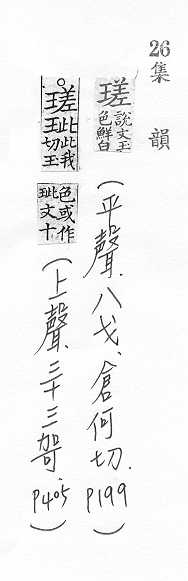 26集韻
瑳 說文玉色鮮白
(平聲.八戈、倉何切.P199)
○瑳玼 此我切玉
色或作玼文十
(上聲.三十三哿.P405)